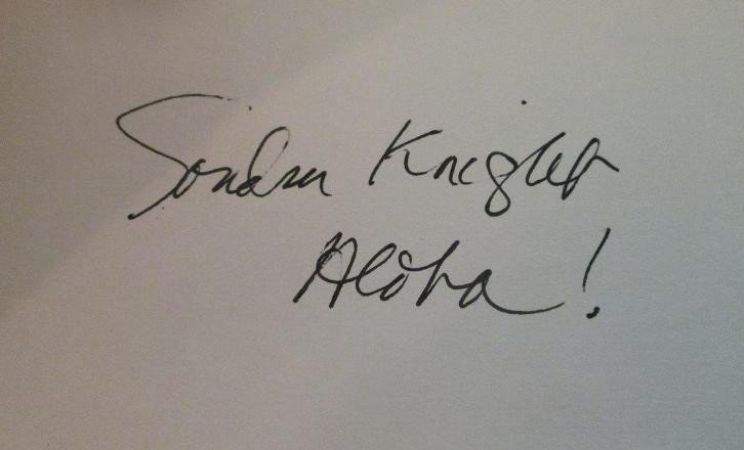 Sondra Knight
Aloha!